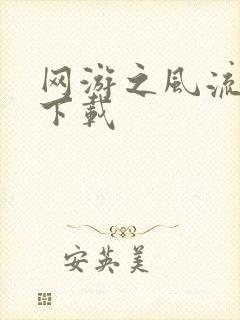 网游之风流
下载
安英美